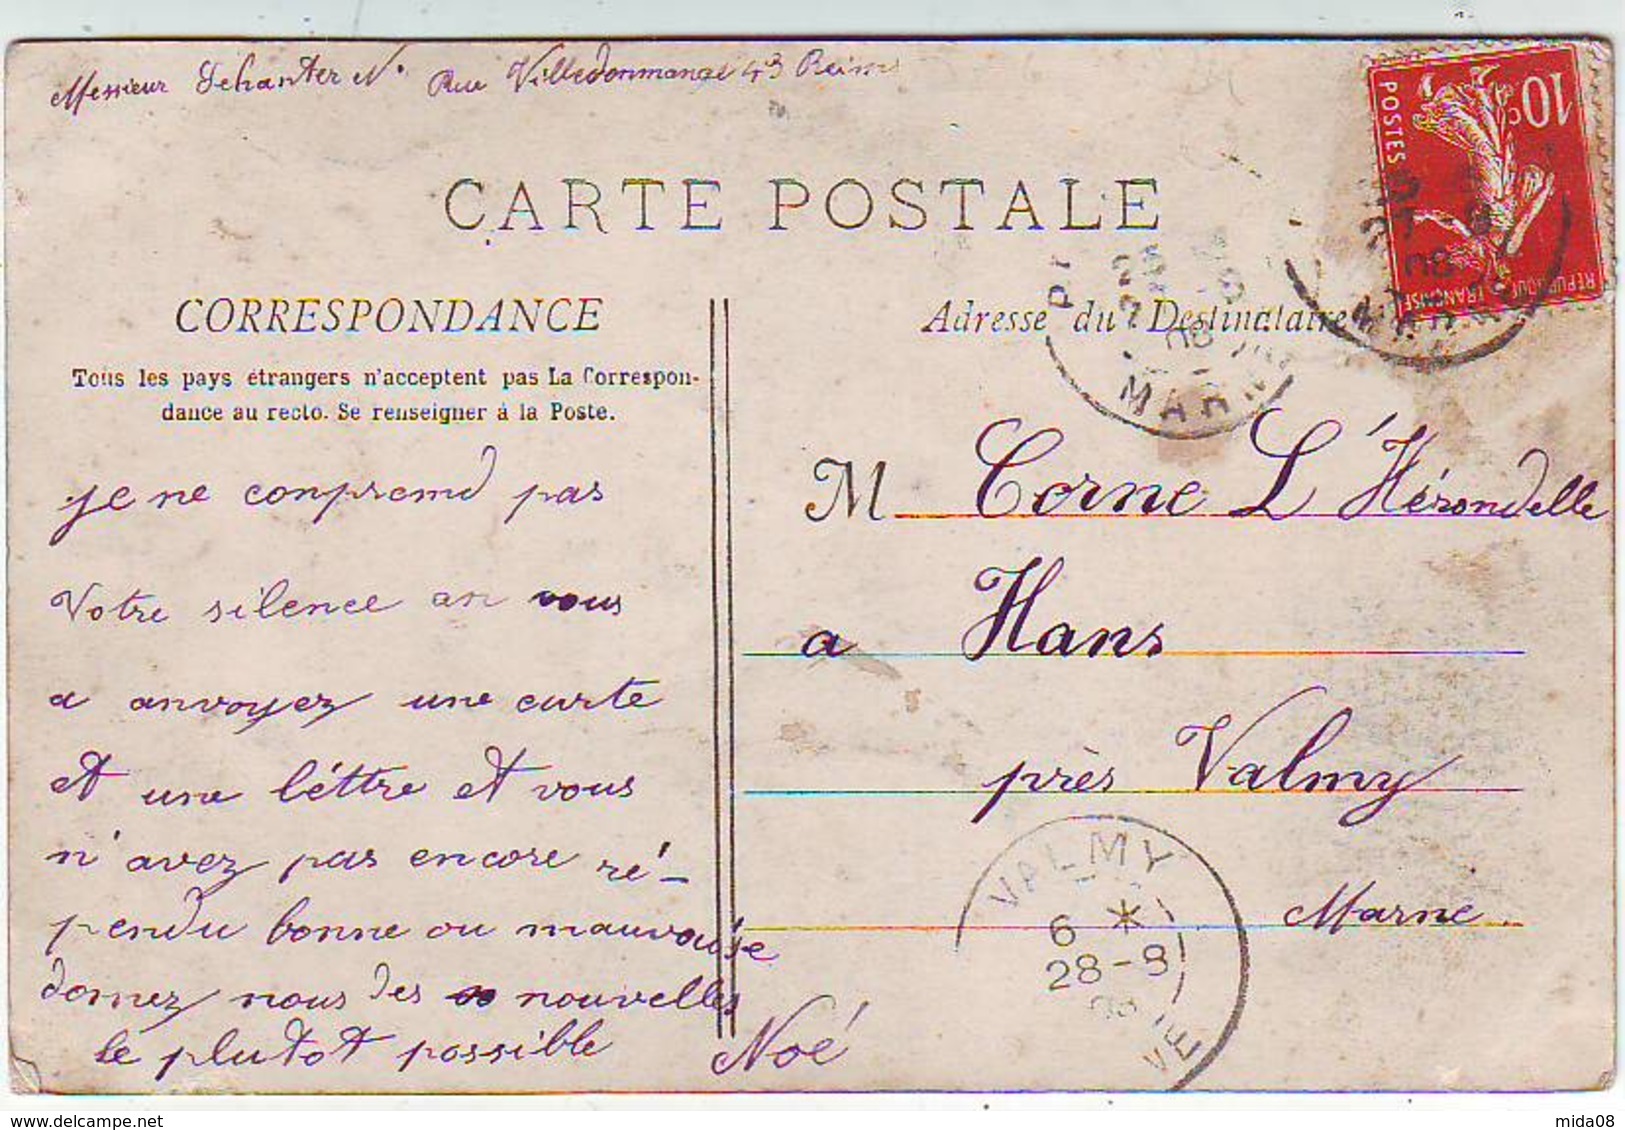 Messieur Dehanter N. Rue Villedommange 43 Reims
CARTE POSTALE
10c
POSTES
REPUBLIQUE FRANÇAISE
CORRESPONDANCE
Tous les pays étrangers n'acceptent pas La Correspon-
dance au recto. Se renseigner à la Poste.
Adresse du Destinataire
MARNE
MARNE
je ne conprend pas
Votre silence on vous
a anvoyez une carte
et une léttre et vous
n'avez pas encore ré-
pendu bonne ou mauvaise
donnez nous des nouvelles
le plutot possible Noé
M Corne L'Hérondelle
a Hans
près Valmy
Marne
VALMY
6 *
28-8
08
mida08